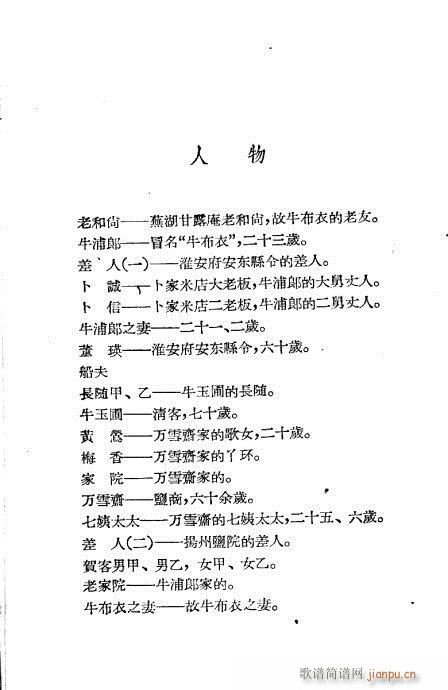 人 物
老和尙——蕪湖甘露庵老和尙，故牛布衣的老友。
牛浦郞——冒名“牛布衣”，二十三歲。
差 人(一)——淮安府安东縣令的差人。
卜 誠——卜家米店大老板，牛浦郞的大舅丈人。
卜 信——卜家米店二老板，牛浦郞的二舅丈人。
牛浦郞之妻——二十一、二歲。
董 瑛——淮安府安东縣令，六十歲。
船夫
長随甲、乙——牛玉圃的長随。
牛玉圃——淸客，七十歲。
黃 鶯——万雪齋家的歌女，二十歲。
梅 香——万雪齋家的丫环。
家 院——万雪齋家的。
万雪齋——鹽商，六十余歲。
七姨太太——万雪齋的七姨太太，二十五、六歲。
差 人(二)——揚州鹽院的差人。
賀客男甲、男乙，女甲、女乙。
老家院——牛浦郞家的。
牛布衣之妻——故牛布衣之妻。
歌谱简谱网
jianpu.cn